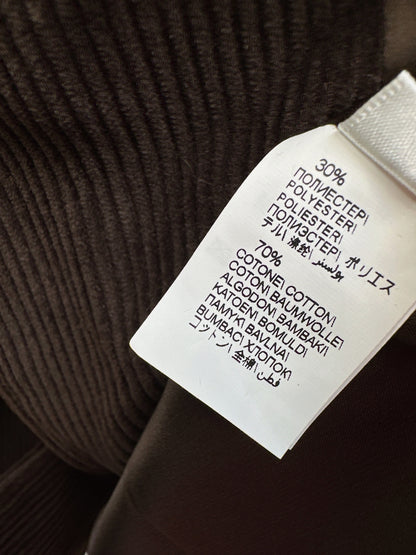 30%
ПОЛИЕСТЕР\
POLYESTER\
POLIESTER\
ПОЛИЭСТЕР\ ポリエス
テル\ 涤纶\ بوليستر\
70%
COTONE\ COTTON\
COTON\ BAUMWOLLE\
ALGODON\ BAMBAKI\
KATOEN\ BOMULD\
ПАМУК\ BAVLNA\
BUMBAC\ ХЛОПОК\
コットン\ 全棉\ قطن\